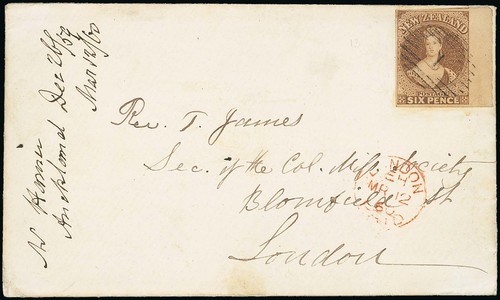 NEW ZEALAND
POSTAGE
SIX PENCE
Rev. T. James
Sec. of the Col. Miss. Society
Blomfield St
London
Auckland Dec 26/59
Mar 12/60
LONDON
MR 12
60
PAID